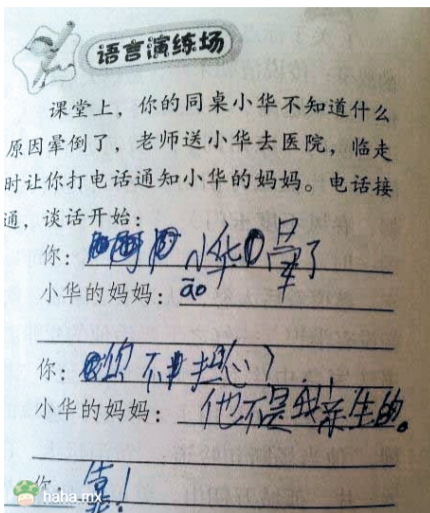 语言演练场
课堂上，你的同桌小华不知道什么
原因晕倒了，老师送小华去医院，临走
时让你打电话通知小华的妈妈。电话接
通，谈话开始：
你：小华晕了
小华的妈妈：āo
你：你不担心？
小华的妈妈：他不是我亲生的。
你：靠！
haha.mx